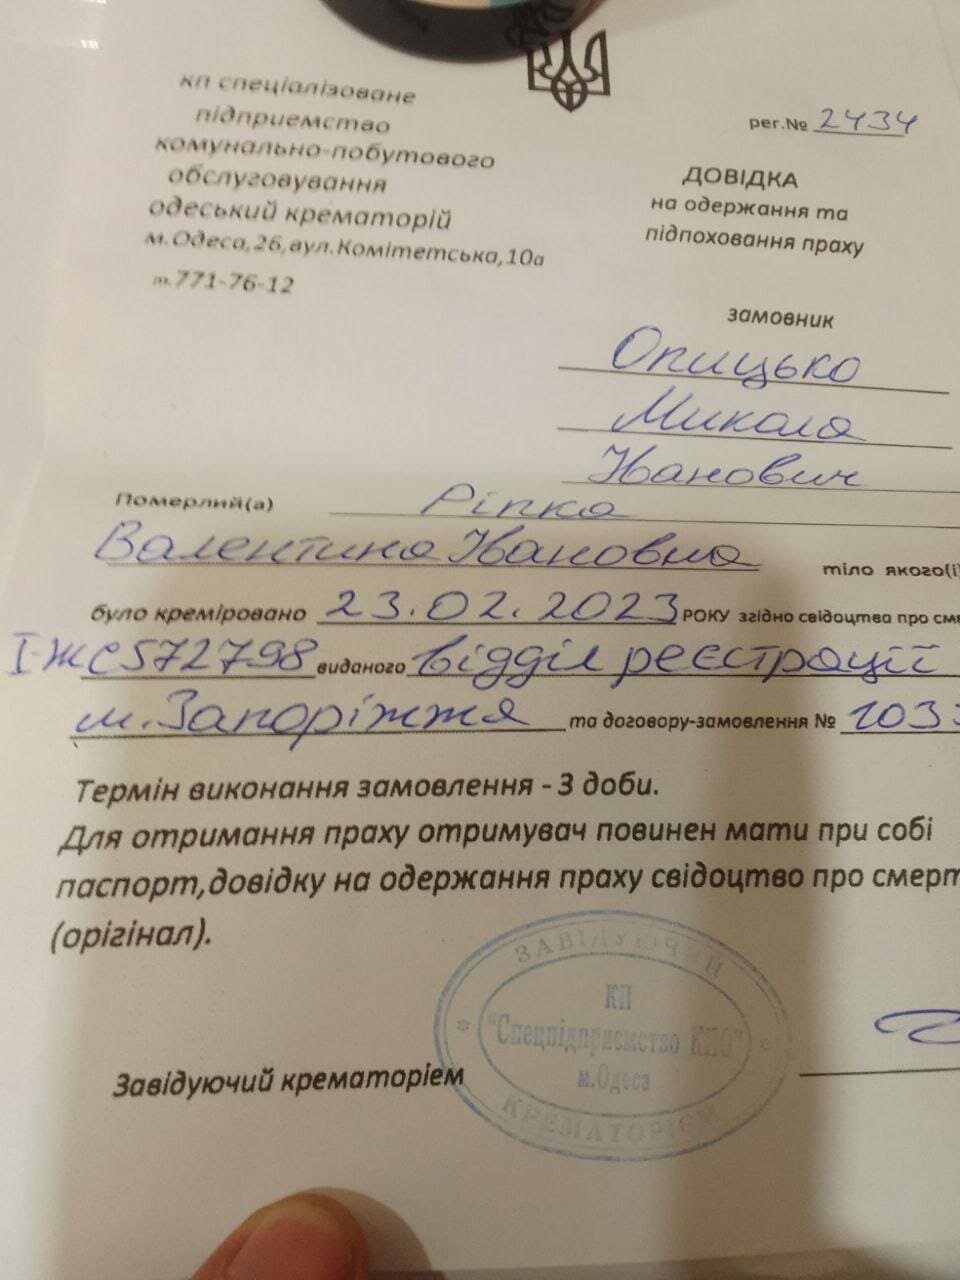 кп спеціалізоване
підприємство
комунально-побутового
обслуговування
одеський крематорій
м.Одеса,26,вул.Комітетська,10а
т.771-76-12
рег.№ 2434
ДОВІДКА
на одержання та
підпоховання праху
замовник
Опицько
Микола
Іванович
Померлий(а) Ріпка
Валентина Івановна тіло якого(і)
було креміровано 23.02.2023 РОКУ згідно свідоцтва про сме
І-ЖС572798 виданого відділ реєстрації
м.Запоріжжя та договору-замовлення № 1033
Термін виконання замовлення - 3 доби.
Для отримання праху отримувач повинен мати при собі
паспорт,довідку на одержання праху свідоцтво про смерт
(орігінал).
ЗАВІДУЮЧИЙ
КП
"Спецпідприємство КПО"
м.Одеса
КРЕМАТОРІЄМ
Завідуючий крематоріем